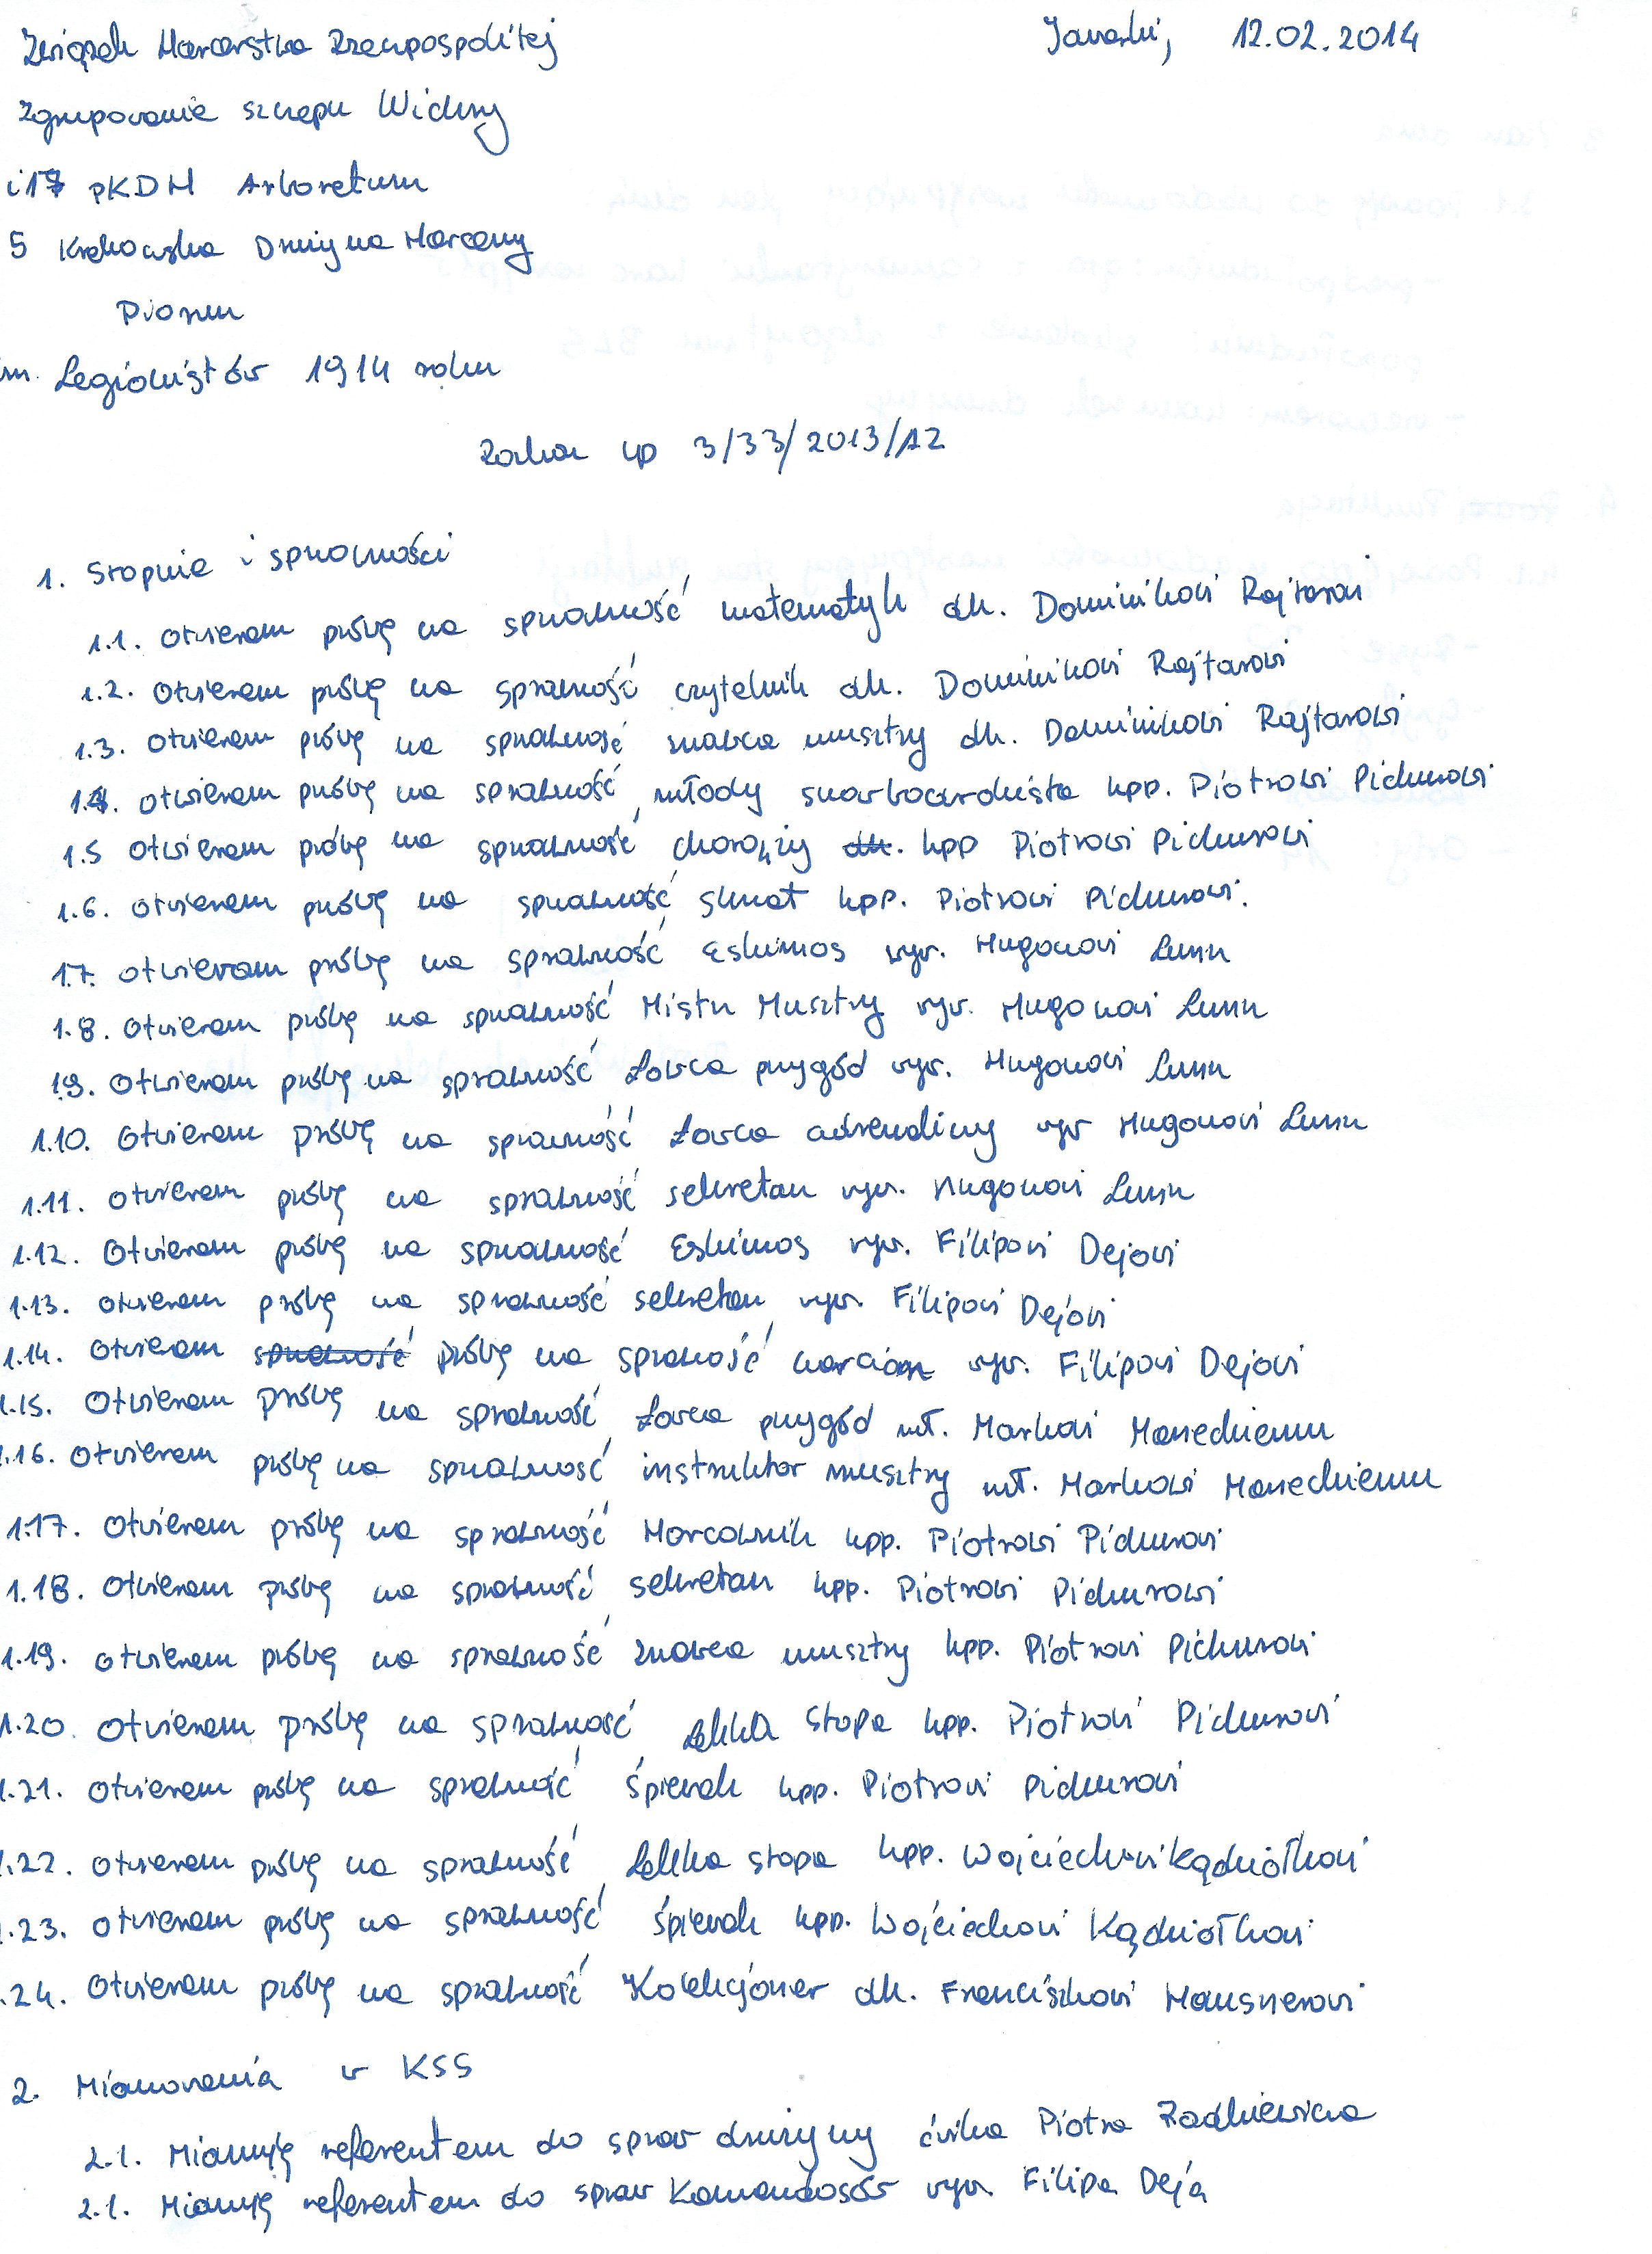 Związek Harcerstwa Rzeczpospolitej
Jaworki, 12.02.2014
Zgrupowanie szczepu Wichry
i 17 pKDH Arboretum
5 Krakowska Drużyna Harcerzy
Piorun
im. Legionistów 1914 roku
Rozkaz lp 3/33/2013/AZ
1. Stopnie i sprawności
1.1. Otwieram próbę na sprawność matematyk dh. Dominikowi Rajtarowi
1.2. Otwieram próbę na sprawność czytelnik dh. Dominikowi Rajtarowi
1.3. Otwieram próbę na sprawność znawca musztry dh. Dominikowi Rajtarowi
1.4. Otwieram próbę na sprawność młody snowboardzista hpp. Piotrowi Pichurowi
1.5 Otwieram próbę na sprawność chorąży dh. hpp Piotrowi Pichurowi
1.6. Otwieram próbę na sprawność skrzat hpp. Piotrowi Pichurowi.
1.7. Otwieram próbę na sprawność Eskimos wyw. Hugonowi Lunn
1.8. Otwieram próbę na sprawność Mistrz Musztry wyw. Hugonowi Lunn
1.9. Otwieram próbę na sprawność Łowca przygód wyw. Hugonowi Lunn
1.10. Otwieram próbę na sprawność Łowca adrenaliny wyw Hugonowi Lunn
1.11. Otwieram próbę na sprawność sekretarz wyw. Hugonowi Lunn
1.12. Otwieram próbę na sprawność Eskimos wyw. Filipowi Dejowi
1.13. Otwieram próbę na sprawność sekretarz wyw. Filipowi Dejowi
1.14. Otwieram sprawność próbę na sprawność narciarz wyw. Filipowi Dejowi
1.15. Otwieram próbę na sprawność Łowca przygód mł. Markowi Maneckiemu
1.16. Otwieram próbę na sprawność instruktor musztry mł. Markowi Maneckiemu
1.17. Otwieram próbę na sprawność Harcownik hpp. Piotrowi Pichurowi
1.18. Otwieram próbę na sprawność sekretarz hpp. Piotrowi Pichurowi
1.19. Otwieram próbę na sprawność znawca musztry hpp. Piotrowi Pichurowi
1.20. Otwieram próbę na sprawność Lekka stopa hpp. Piotrowi Pichurowi
1.21. Otwieram próbę na sprawność śpiewak hpp. Piotrowi Pichurowi
1.22. Otwieram próbę na sprawność Lekka stopa hpp. Wojciechowi Kądziołkowi
1.23. Otwieram próbę na sprawność śpiewak hpp. Wojciechowi Kądziołkowi
1.24. Otwieram próbę na sprawność Kolekcjoner dh. Franciszkowi Hausnerowi
2. Mianowania w KSS
2.1. Mianuję referentem do spraw drużyny ćwika Piotra Radkiewicza
2.1. Mianuję referentem do spraw Komandosów wyw. Filipa Deja